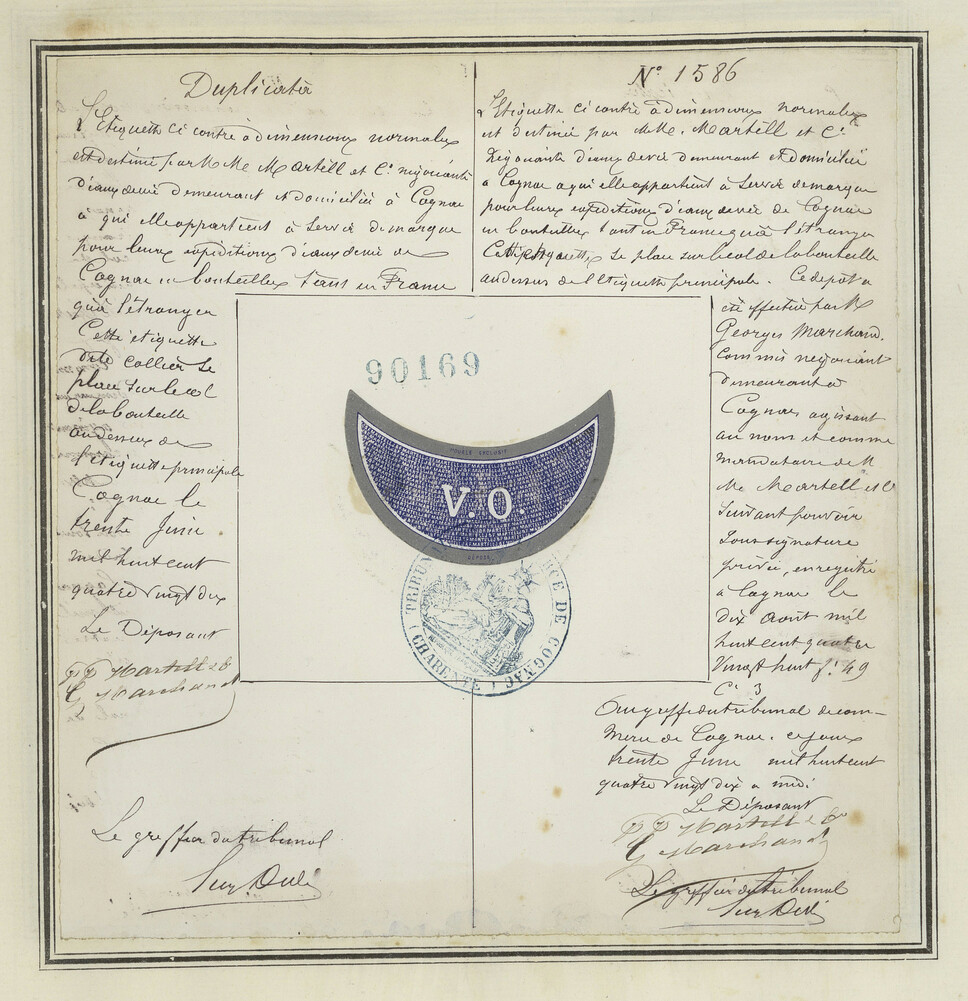 Duplicata
L'Etiquette ci contre à dimensions normales
est destiné par M Me Martell et Cie négociants
d'eaux de vie demeurant et domiciliés à Cognac
à qui elle appartient à servir de marque
pour leurs expéditions d'eaux de vie de
Cognac en bouteilles tant en France
qu'à l'étranger
Cette étiquette
dite Collier se
place sur le col
de la bouteille
au dessus de
l'étiquette principale
Cognac le
trente Juin
mil huit cent
quatre vingt dix
Le Déposant
PP Martell & Co
G Marchand
Le greffier du tribunal
No 1586
L'Etiquette ci contre à dimensions normales
est destiné par M Me. Martell et Cie
Négociants d'eaux de vie demeurant et domiciliés
a Cognac a qui elle appartient à servir de marque
pour leurs expéditions d'eaux de vie de Cognac
en bouteilles tant en France qu'à l'étranger
Cette étiquette se place sur le col de la bouteille
au dessus de l'étiquette principale. Ce depot a
été effectué par M
Georges Marchand.
Commis négociant
demeurant à
Cognac agissant
au nom et comme
mandataire de M
Me Martell et Cie
Suivant pouvoir
sous signature
privée, enregistré
a Cognac le
dix Aout mil
huit cent quatre
Vingt huit fo. 49
Ce 3
Au greffe du tribunal de com-
merce de Cognac. ce jour
trente Juin mil huit cent
quatre vingt dix a midi
Le Déposant
PP Martell & Co
G Marchand
Le greffier du tribunal
90169
MODÈLE EXCLUSIF
V.O.
DÉPOSÉ
TRIBUNAL DE COMMERCE DE COGNAC
CHARENTE